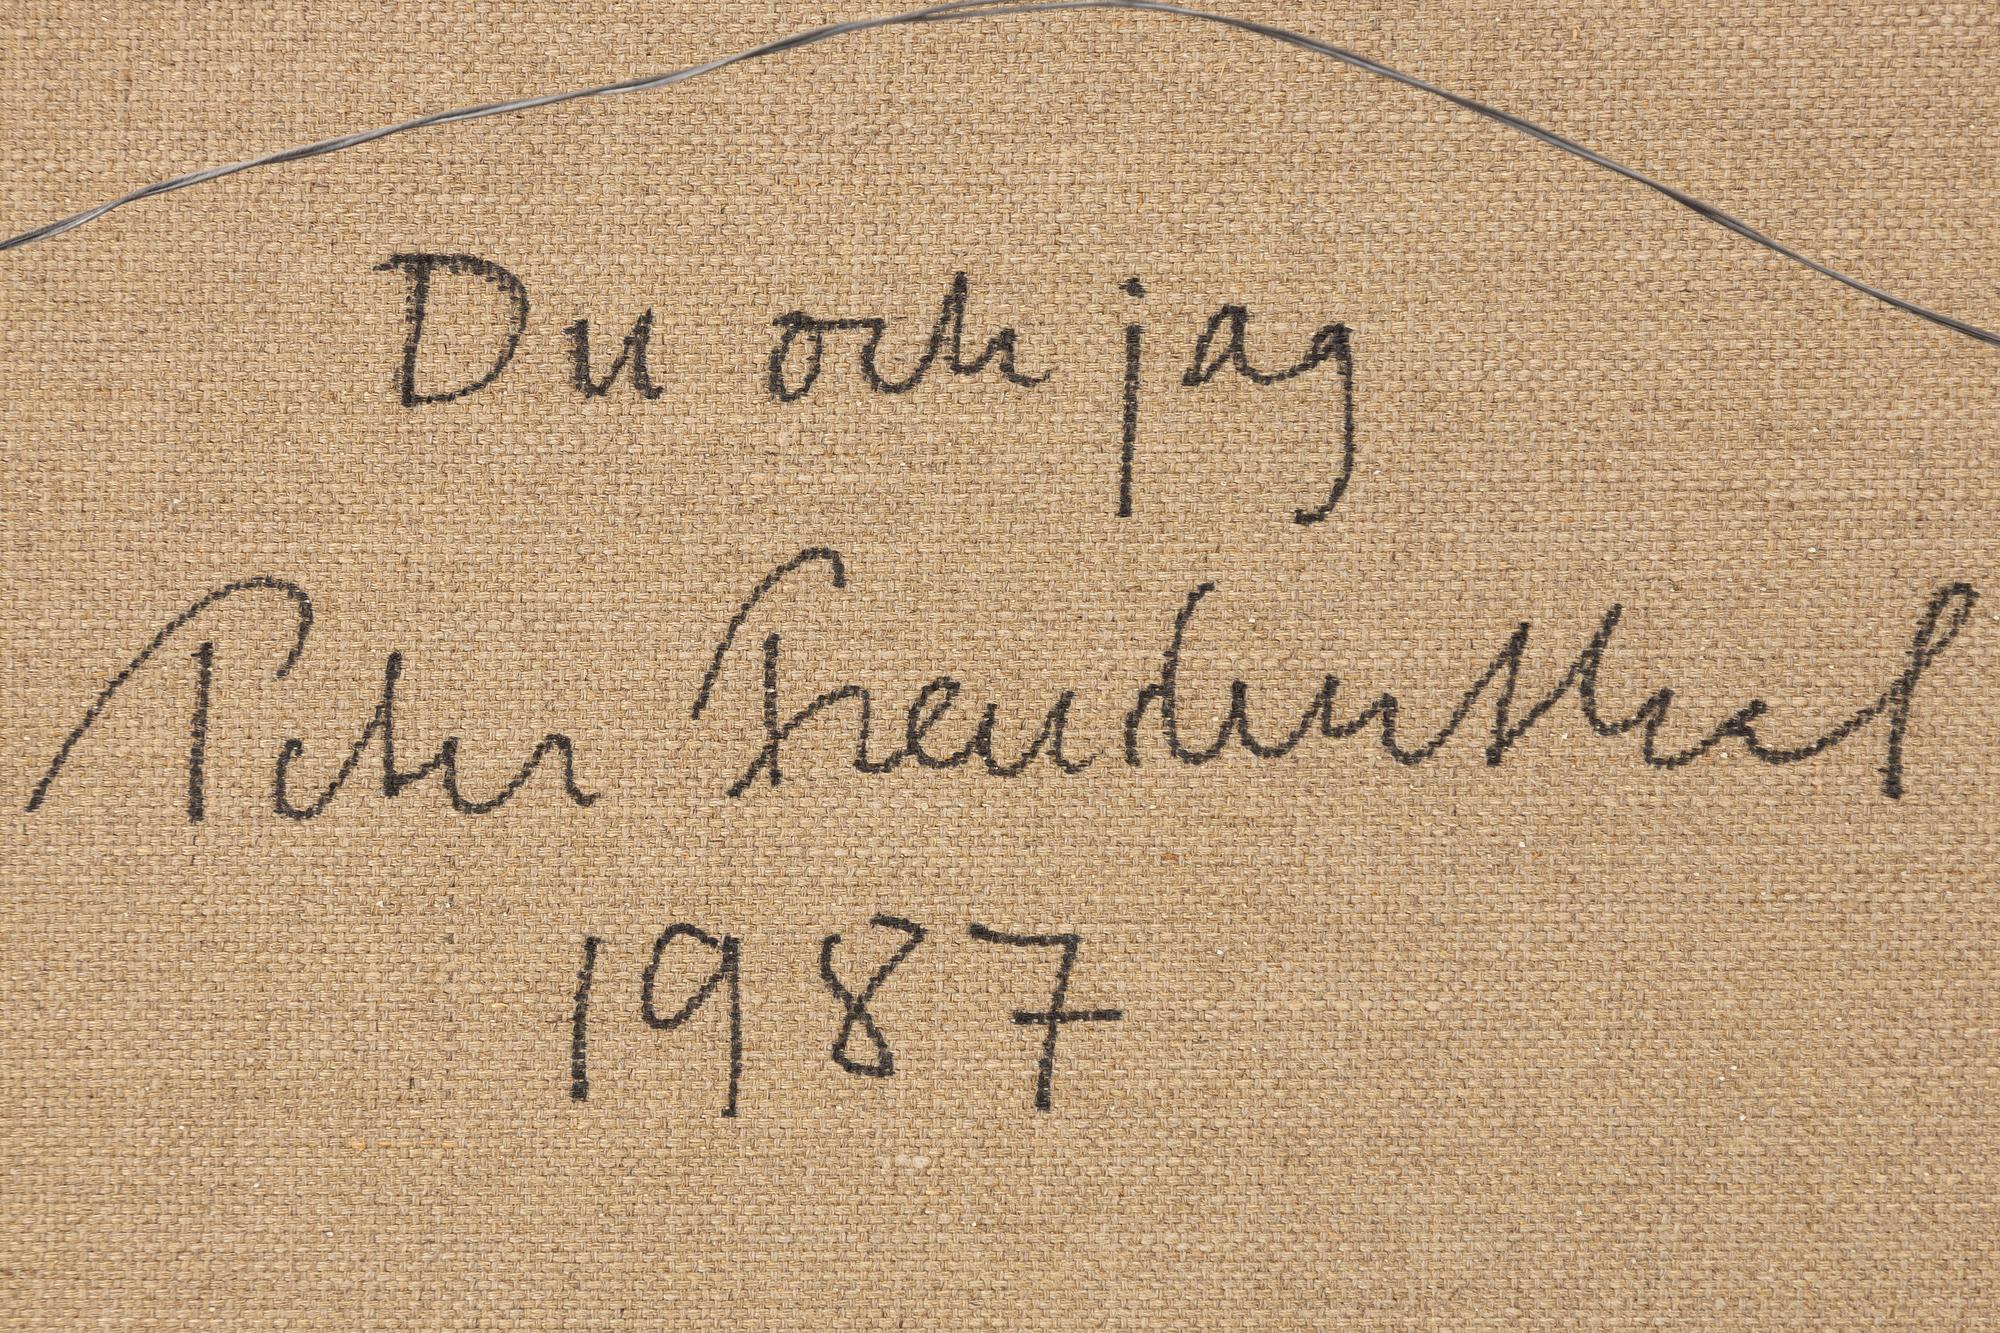 Du och jag
Peter Freudenthal
1987